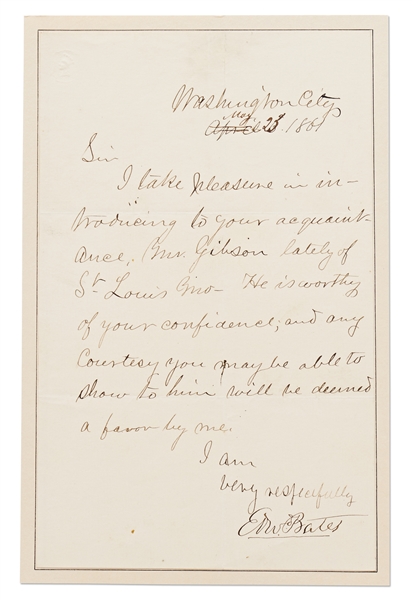 Washington City
May
April 23. 1861
Sir
I take pleasure in in-
troducing to your acquaint-
ance, Mr. Gibson lately of
St. Louis Mo- He is worthy
of your confidence; and any
Courtesy you may be able to
show to him will be deemed
a favor by me.
I am
very respectfully
Edw. Bates